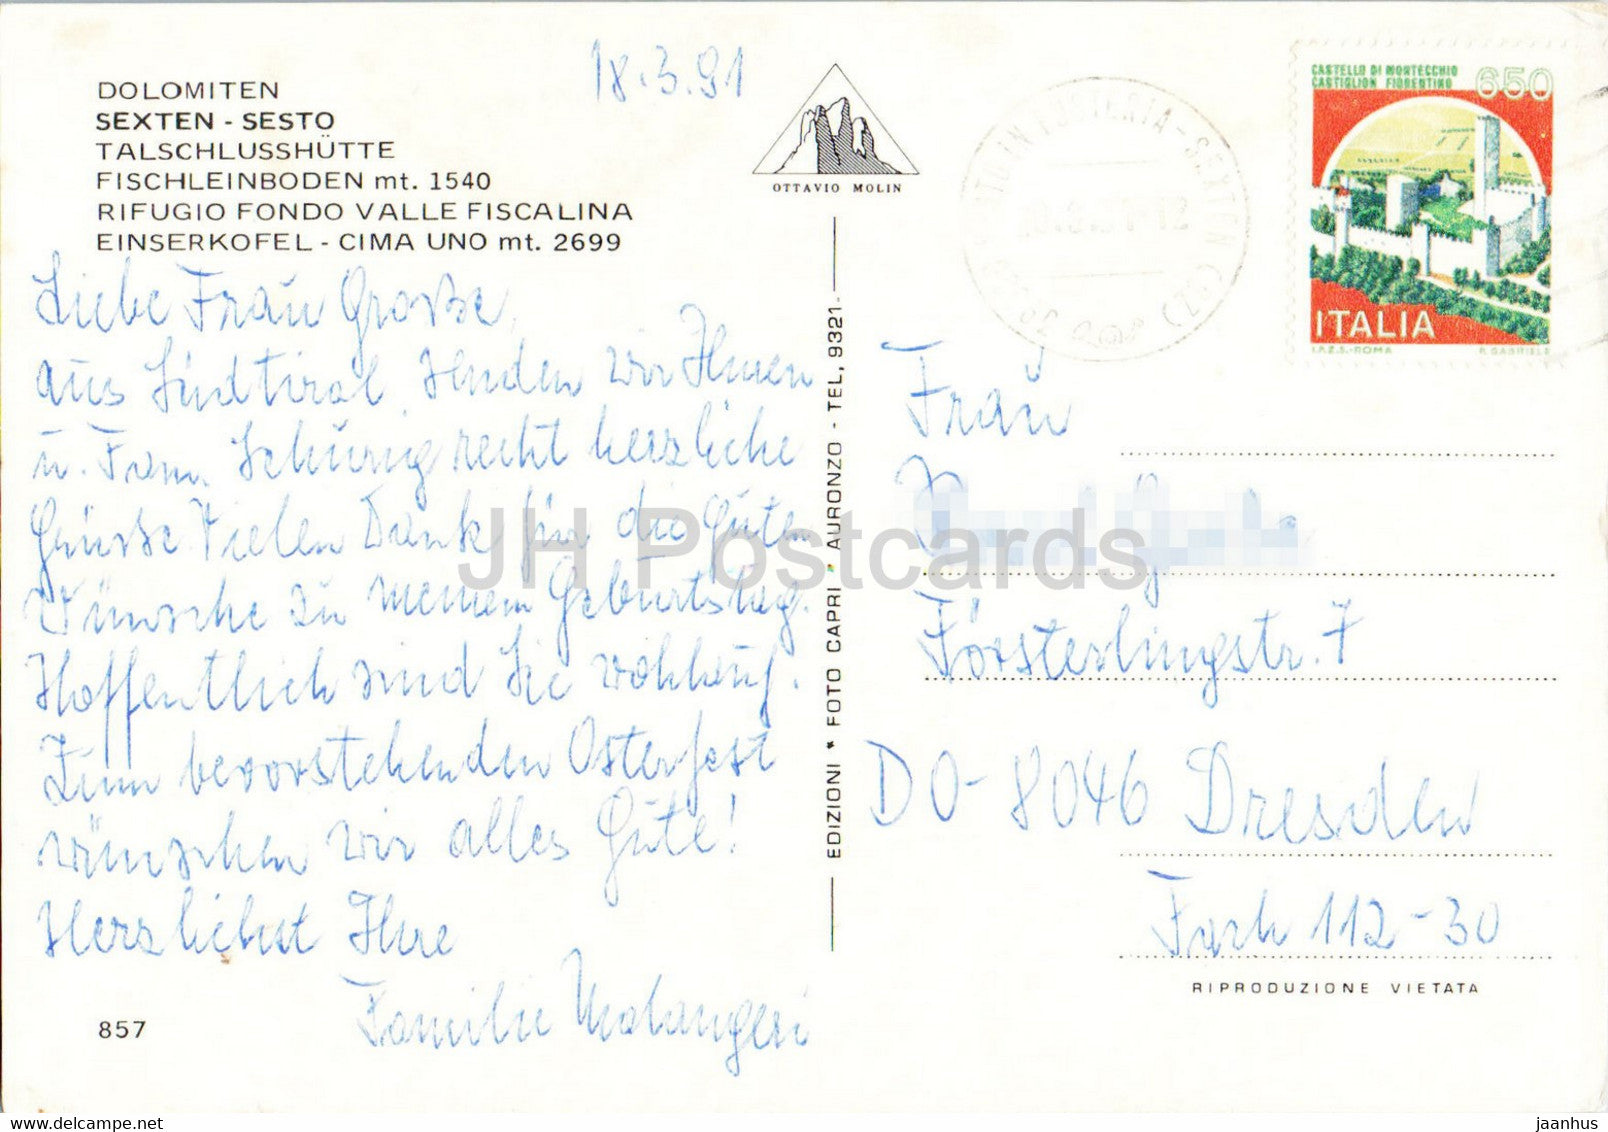 DOLOMITEN
SEXTEN - SESTO
TALSCHLUSSHÜTTE
FISCHLEINBODEN mt. 1540
RIFUGIO FONDO VALLE FISCALINA
EINSERKOFEL - CIMA UNO mt. 2699
18.3.91
Liebe Frau Große,
aus Südtirol senden wir Ihnen
u. Fam. Schurig recht herzliche
Grüße. Vielen Dank für die guten
Wünsche zu meinem Geburtstag.
Hoffentlich sind Sie wohlauf.
Zum bevorstehenden Osterfest
wünschen wir alles Gute!
Herzlichst Ihre
Familie
857
OTTAVIO MOLIN
EDIZIONI * FOTO CAPRI * AURONZO - TEL. 9321
CASTELLO DI MONTECCHIO
CASTIGLION FIORENTINO
650
ITALIA
I.P.Z.S.-ROMA
Frau
Försterlingstr. 7
DO-8046 Dresden
Fach 112-30
RIPRODUZIONE VIETATA
JH Postcards
https://www.delcampe.net
jaanhus